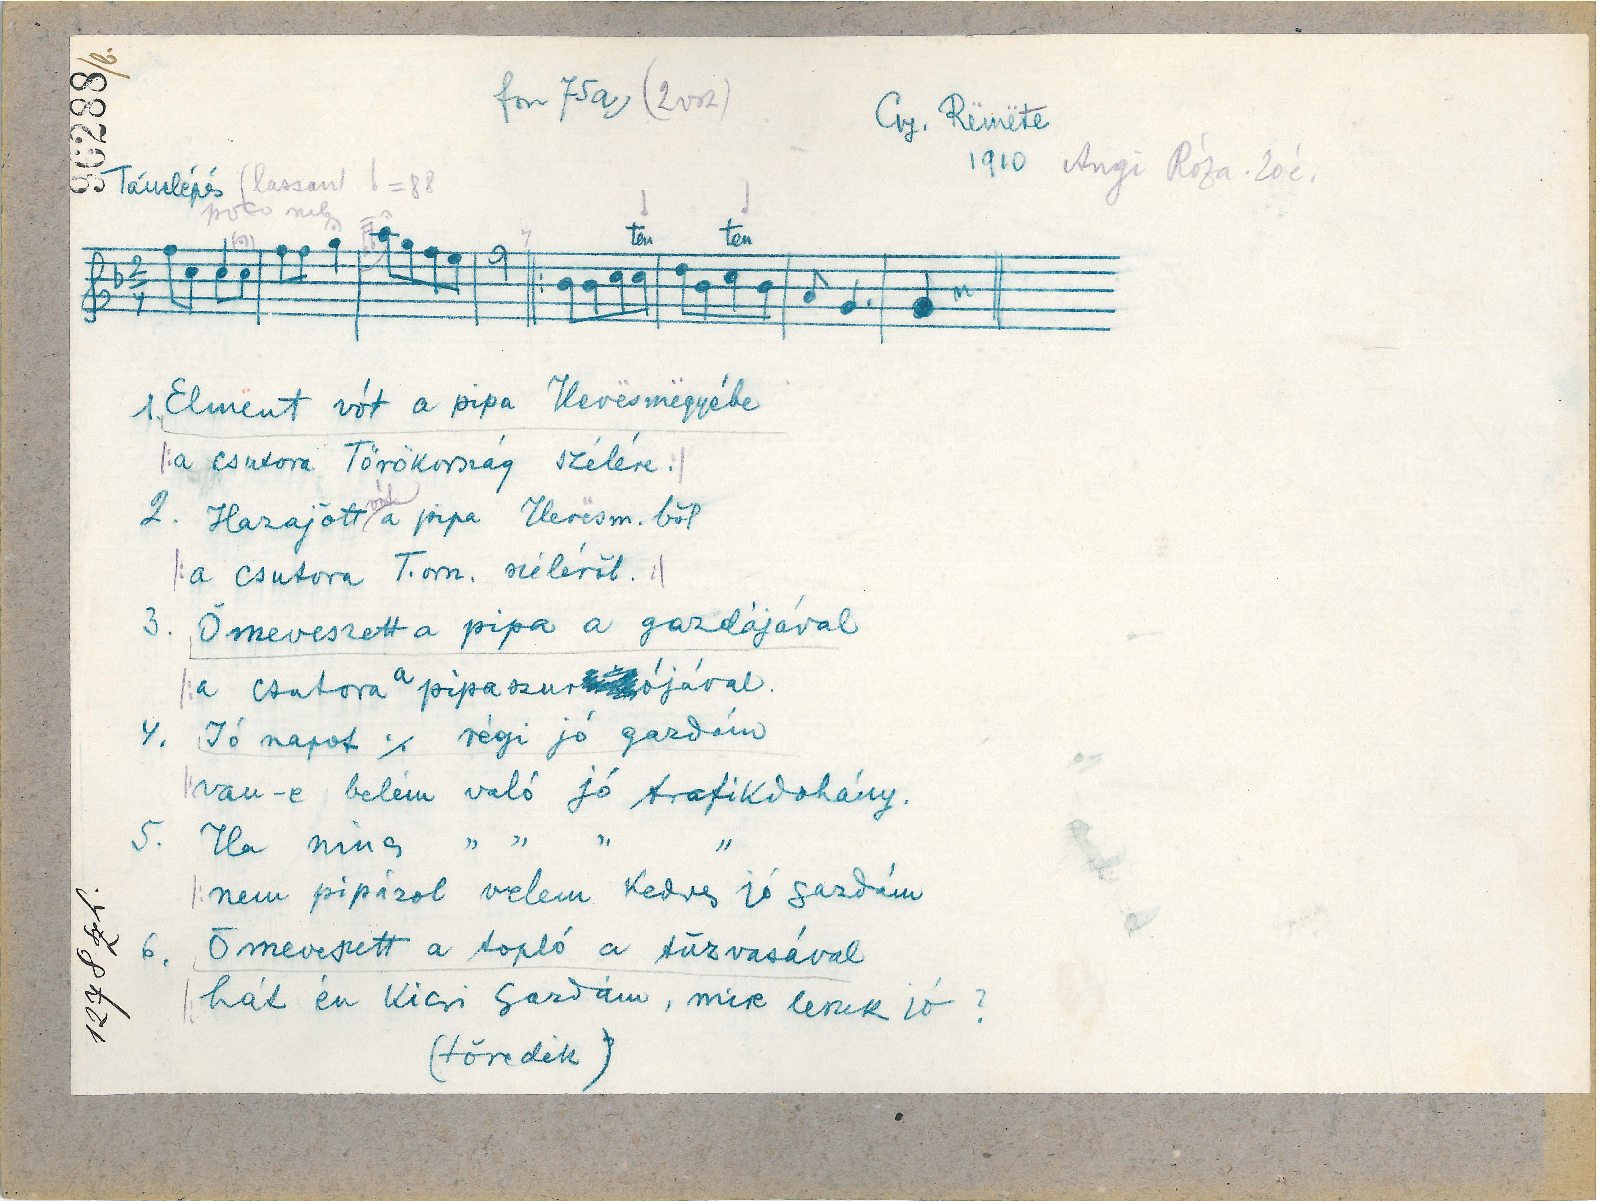 96288/b.
fon 75a, (2 vsz)
Gy. Rëmëte
1910 Angi Róza. 20é.
Tánclépés (lassan) = 88
poco
2
4
ten ten
1. Elmënt vót a pipa Hevësmëgyébe
|: a csutora Törökország szélére :|
2. Hazajött vót a pipa Hevësm. ből
|: a csutora T. orsz. széléről. :|
3. Ömeveszett a pipa a gazdájával
|: a csutora a pipaszurkálójával.
4. Jó napot ./. régi jó gazdám
|: van-e belém való jó trafikdohány.
5. Ha nincs " " " "
|: nem pipázol velem kedves jó gazdám
6. Ömeveszett a topló a tűzvasával
|: hát én kicsi gazdám, mire leszek jó ?
(töredék)
1278